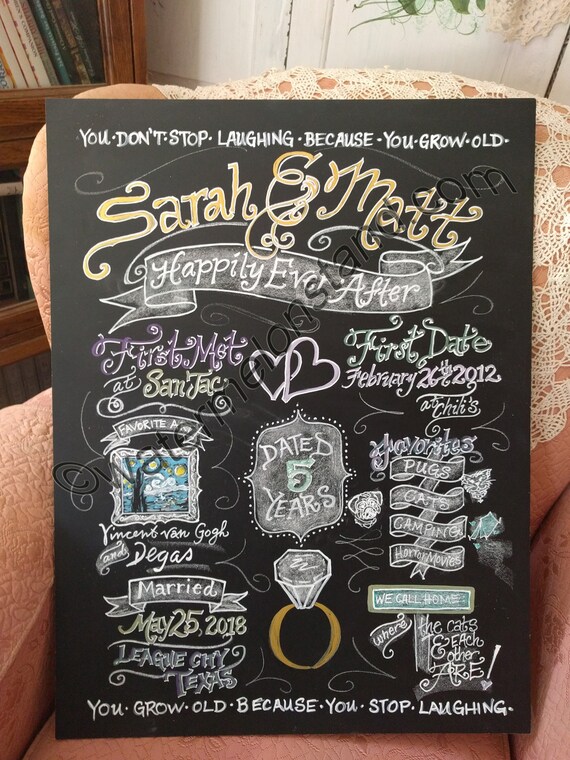 YOU·DON'T·STOP·LAUGHING·BECAUSE·YOU·GROW·OLD·
Sarah & Matt
Happily Ever After
First Met
at SanJac
First Date
February 26th 2012
at Chili's
FAVORITE
DATED
5
YEARS
Favorites
PUGS
CATS
CAMPING
Horror Movies
Vincent van Gogh
and Degas
Married
May 25, 2018
LEAGUE CITY
TEXAS
WE CALL HOME:
where the cats
& EACH
other
ARE!
YOU·GROW·OLD·BECAUSE·YOU·STOP·LAUGHING·
©watermelonstand.com